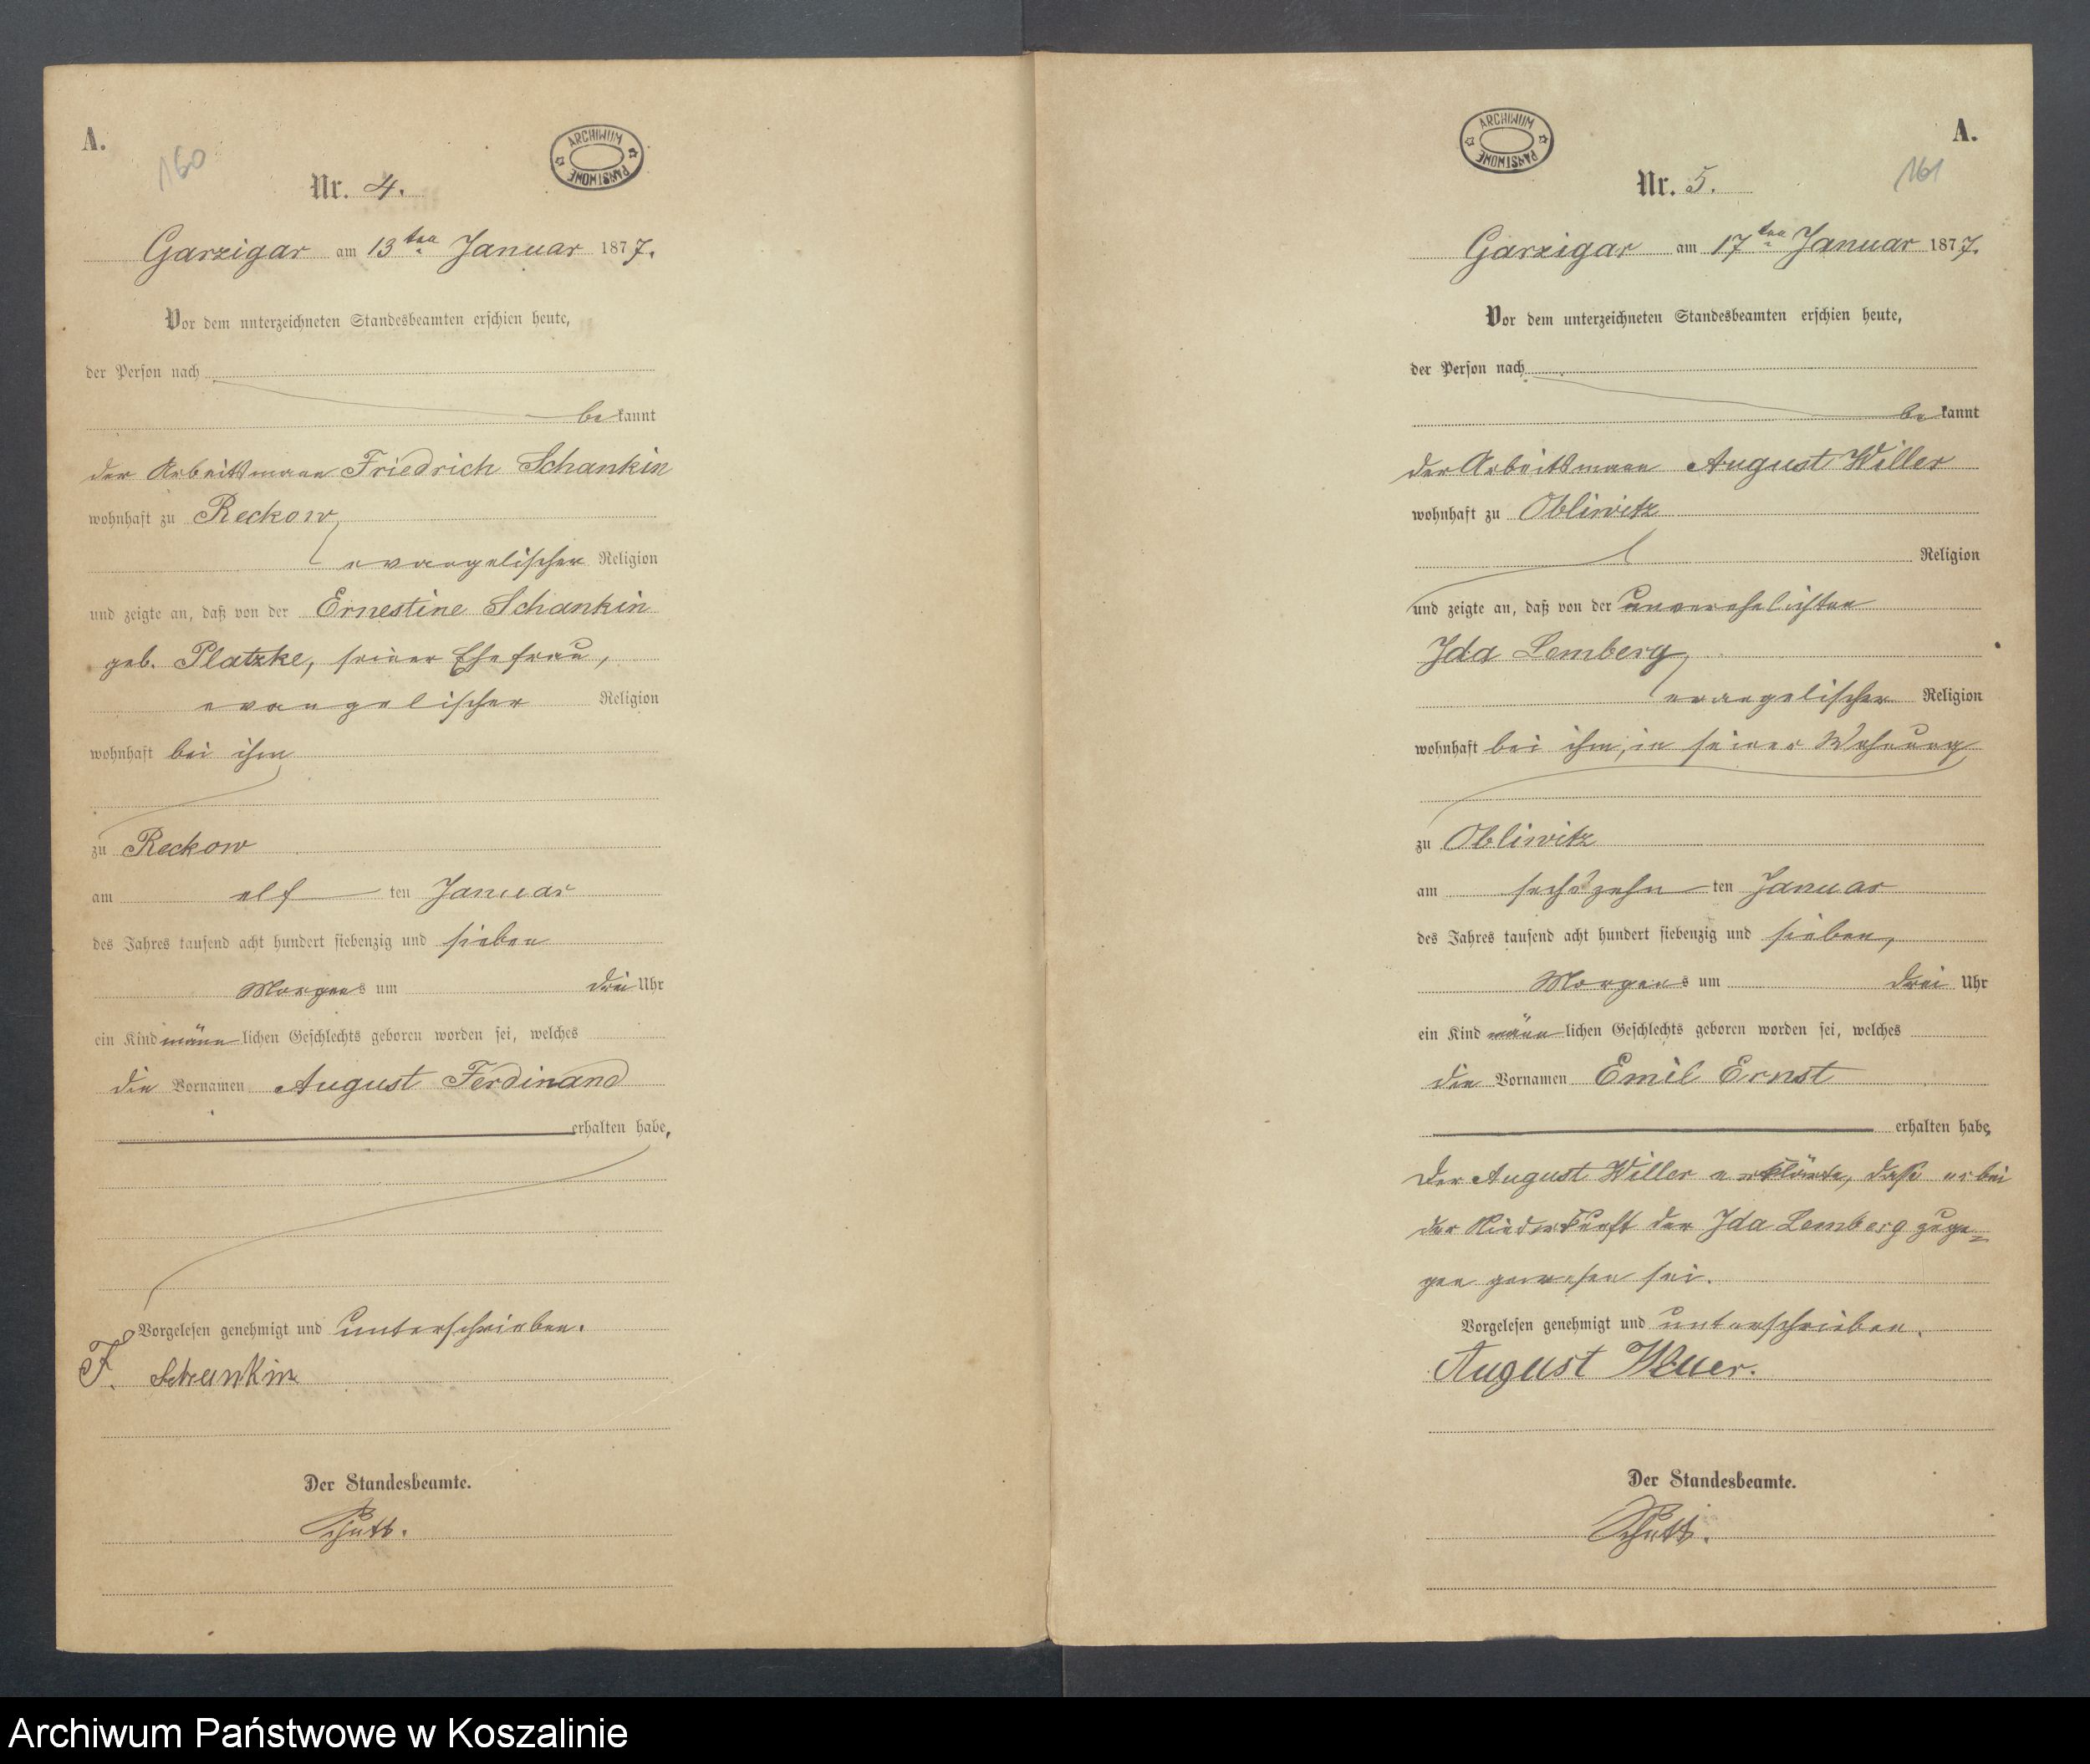 A.
160
ARCHIWUM PAŃSTWOWE
Nr. 4.
Garzigar am 13ten Januar 1877.
Vor dem unterzeichneten Standesbeamten erschien heute,
der Person nach
bekannt
der Arbeitsmann Friedrich Schankin
wohnhaft zu Reckow,
evangelischer Religion
und zeigte an, daß von der Ernestine Schankin
geb. Platzke, seiner Ehefrau,
evangelischer Religion
wohnhaft bei ihm
zu Reckow
am elf ten Januar
des Jahres tausend acht hundert siebenzig und sieben
Morgens um drei Uhr
ein Kind männlichen Geschlechts geboren worden sei, welches
die Vornamen August Ferdinand
erhalten habe,
Vorgelesen genehmigt und unterschrieben.
F. Schankin
Der Standesbeamte.
ARCHIWUM PAŃSTWOWE
A.
161
Nr. 5.
Garzigar am 17ten Januar 1877.
Vor dem unterzeichneten Standesbeamten erschien heute,
der Person nach
bekannt
der Arbeitsmann August Willer
wohnhaft zu Obliwitz
Religion
und zeigte an, daß von der unverehelichten
Ida Lemberg,
evangelischer Religion
wohnhaft bei ihm, in seiner Wohnung
zu Obliwitz
am sechszehn ten Januar
des Jahres tausend acht hundert siebenzig und sieben,
Morgens um drei Uhr
ein Kind männlichen Geschlechts geboren worden sei, welches
die Vornamen Emil Ernst
erhalten habe,
Der August Willer erklärte, daß er bei
der Niederkunft der Ida Lemberg zuge=
gen gewesen sei.
Vorgelesen genehmigt und unterschrieben.
August Willer.
Der Standesbeamte.
Archiwum Państwowe w Koszalinie